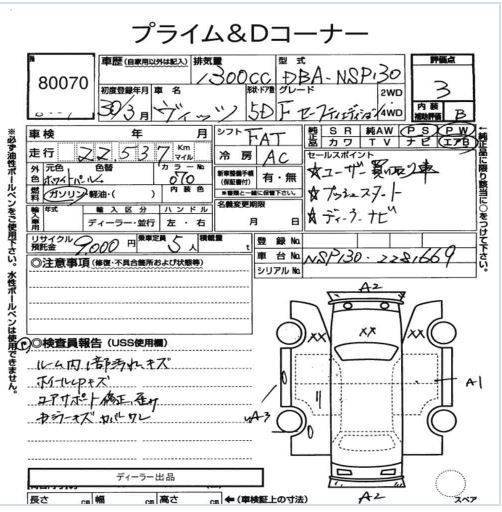 プライム&Dコーナー
№
80070
車歴 (自家用以外は記入)
排気量
1300cc
型式
DBA-NSP130
評価点
3
初度登録年月
30/3月
車名
ヴィッツ
形状・ドア数
5D
グレード
F セーフティエディション
2WD
4WD
内装
補助評価
B
車検 年 月
走行 22,537 Km マイル
シフト
FAT
冷房 AC
純正品
SR 純AW PS PW
カワ TV ナビ エアB
外色
元色
ホワイトパール
色替
カラーNo.
070
燃料
ガソリン・軽油・( )
内装色
新車整備手帳
(保証書付)
有・無
★書類と一緒に保管下さい。
セールスポイント
☆ユーザー買い取り車
☆プッシュスタート
☆ディーラーナビ
輸入車用
年式
輸入区分
ディーラー・並行
ハンドル
左・右
名義変更期限
月 日
リサイクル
預託金
9,000円
乗車定員
5人
積載量
t
登録No.
車台No. NSP130-2281669
シリアルNo.
◎注意事項 (修復・不具合箇所および状態等)
◎検査員報告 (USS使用欄)
ルーム内1部汚れキズ
ホイールPキズ
コアサポート修正、歪み
ミラーキズ カバーワレ
A2
XX
XX
XX
A1
UA3
A2
ディーラー出品
長さ cm 幅 cm 高さ cm
←(車検証上の寸法)
※必ず油性ボールペンをご使用下さい。水性ボールペンは使用できません。
←純正品に限り該当に○をつけて下さい。